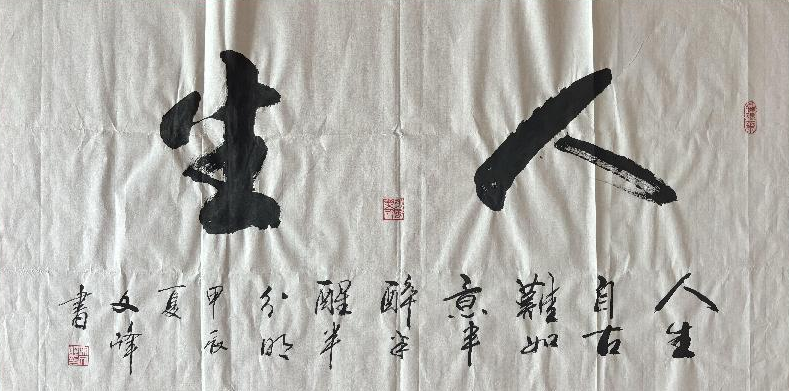 人生
人生
自古
難如
意半
醉半
醒半
分明
甲辰
夏
文峰
書